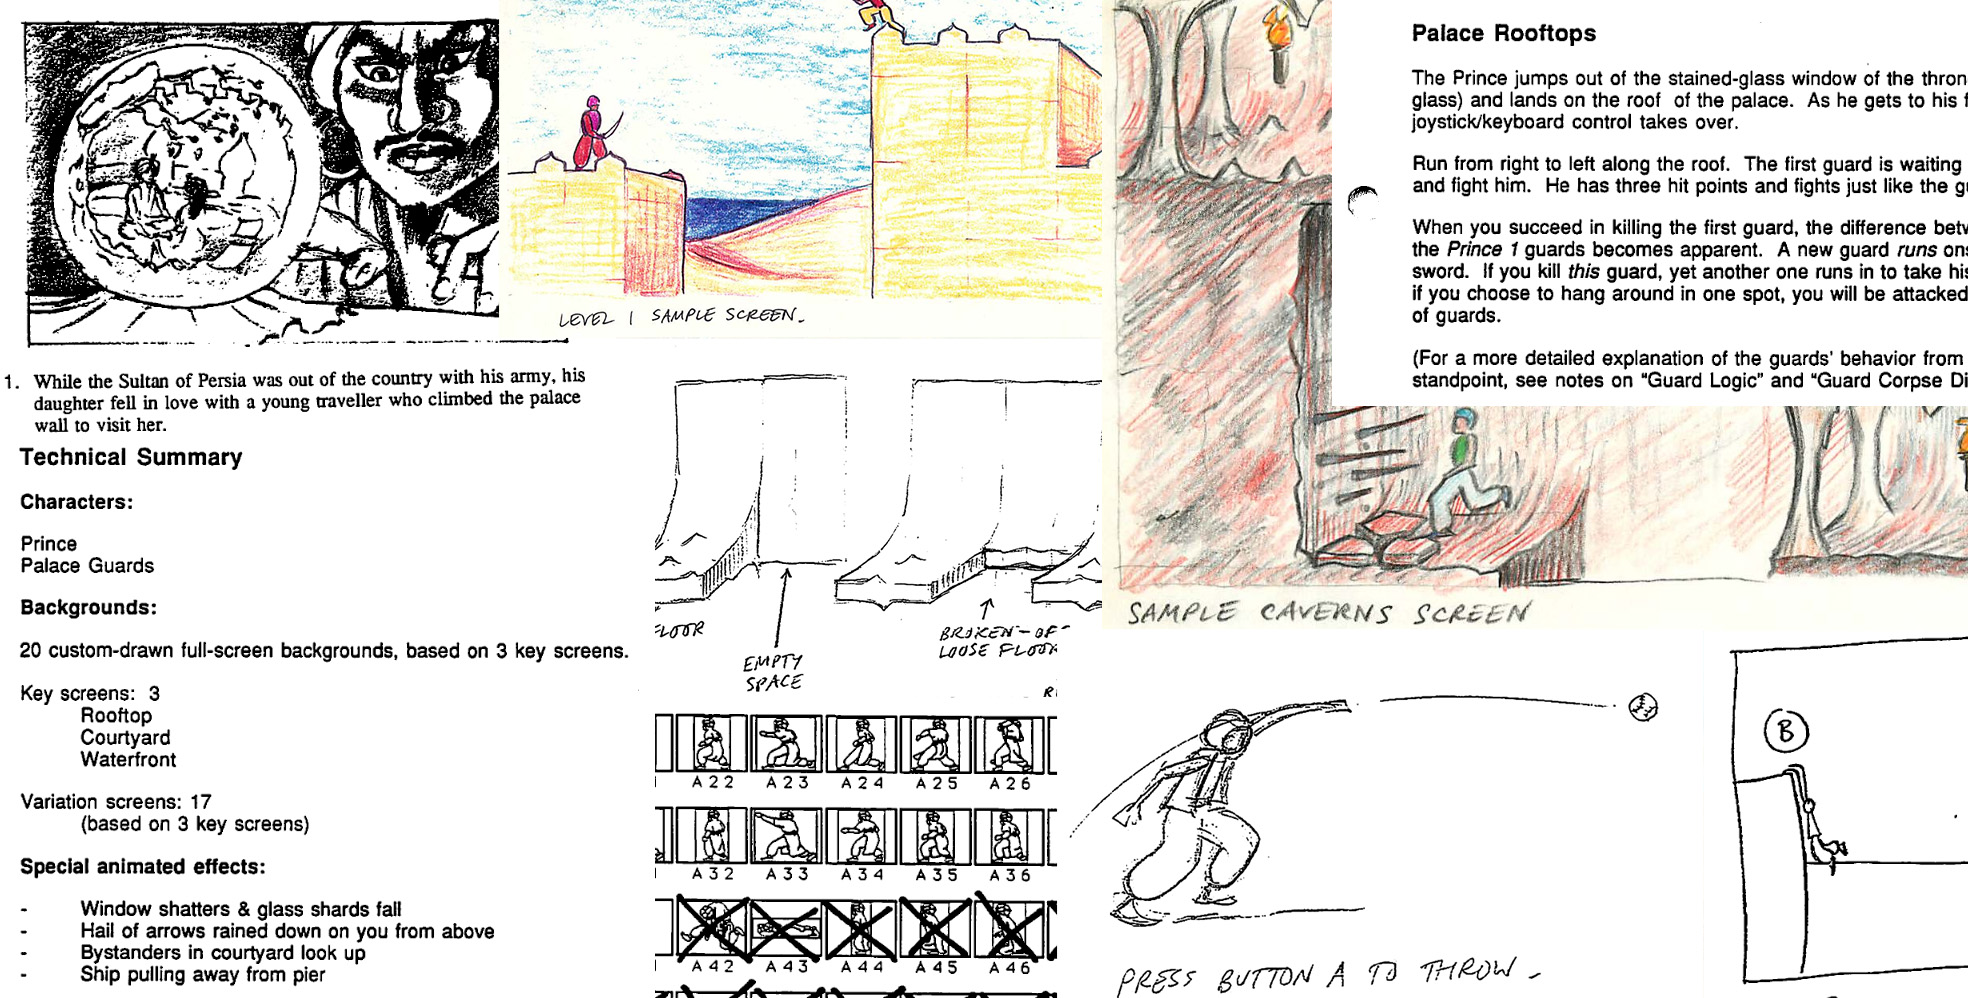 1. While the Sultan of Persia was out of the country with his army, his
daughter fell in love with a young traveller who climbed the palace
wall to visit her.
Technical Summary
Characters:
Prince
Palace Guards
Backgrounds:
20 custom-drawn full-screen backgrounds, based on 3 key screens.
Key screens: 3
Rooftop
Courtyard
Waterfront
Variation screens: 17
(based on 3 key screens)
Special animated effects:
- Window shatters & glass shards fall
- Hail of arrows rained down on you from above
- Bystanders in courtyard look up
- Ship pulling away from pier
LEVEL 1 SAMPLE SCREEN.
FLOOR
EMPTY
SPACE
BROKEN-OF
LOOSE FLOOR
R
A22 A23 A24 A25 A26
A32 A33 A34 A35 A36
A42 A43 A44 A45 A46
Palace Rooftops
The Prince jumps out of the stained-glass window of the thron
glass) and lands on the roof of the palace. As he gets to his f
joystick/keyboard control takes over.
Run from right to left along the roof. The first guard is waiting
and fight him. He has three hit points and fights just like the g
When you succeed in killing the first guard, the difference betw
the Prince 1 guards becomes apparent. A new guard runs ons
sword. If you kill this guard, yet another one runs in to take his
if you choose to hang around in one spot, you will be attacked
of guards.
(For a more detailed explanation of the guards' behavior from
standpoint, see notes on "Guard Logic" and "Guard Corpse Di
SAMPLE CAVERNS SCREEN
PRESS BUTTON A TO THROW-
B